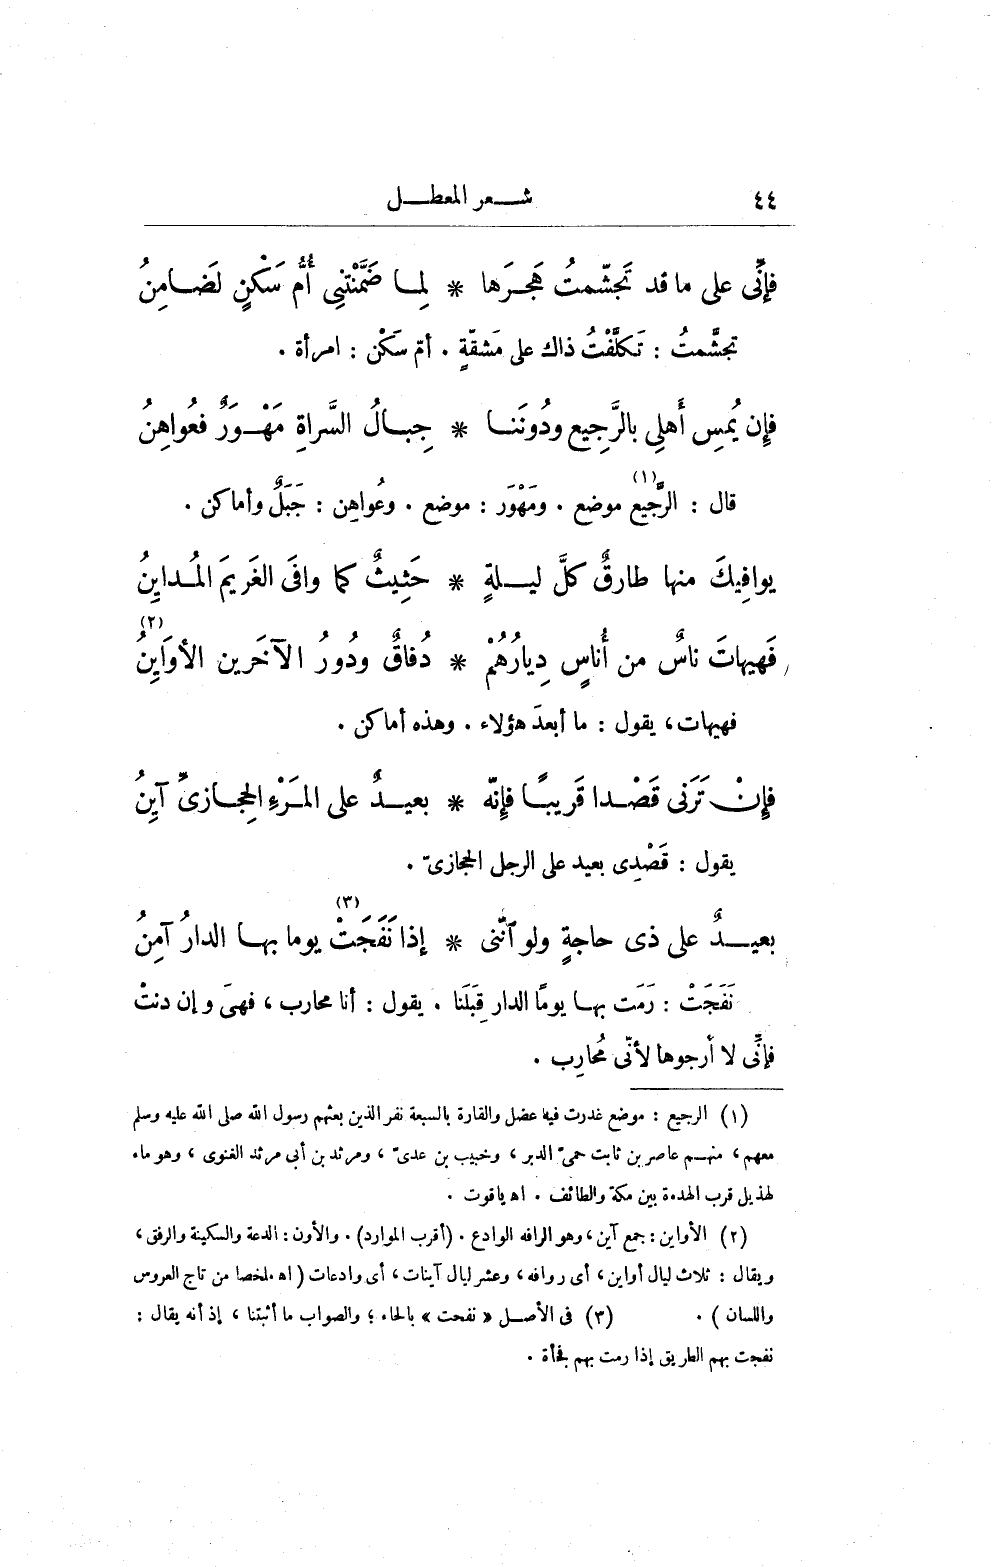 ٤٤ شعر المعطل
فإنِّى على ما قد تَجشّمتُ هَجرَها * لِما ضَمَّنَتْنِى أُمُّ سَكْنٍ لَضامِنُ
تجشَّمتُ : تَكلَّفْتُ ذاك على مَشقّةٍ . أمّ سَكْن : امرأة .
فإن يُمسِ أَهلِى بالرَّجيع ودُونَنا * جِبالُ السَّراةِ مَهْوَرٌ فعُواهِنُ
قال : الرَّجيع (١) موضع . ومَهْوَر : موضع . وعُواهِن : جَبَلٌ وأماكن .
يوافِيكَ منها طارقٌ كلَّ ليلةٍ * حَثِيثٌ كما وافَى الغَريمَ المُدايِنُ
فَهيهاتَ ناسٌ من أُناسٍ دِيارُهُمْ * دُفاقٌ ودُورُ الآخَرين الأوَايِنُ (٢)
فهيهات، يقول : ما أبعدَ هؤلاء . وهذه أماكن .
فإِنْ تَرَنى قَصْدا قَريبًا فإِنّه * بعيدٌ على المَرْءِ الحِجازىِّ آيِنُ
يقول : قَصْدِى بعيد على الرجل الحجازىّ .
بعيدٌ على ذى حاجةٍ ولو ٱنّنى * إذا نَفَجَتْ (٣) يوما بها الدارُ آمِنُ
نَفَجَتْ : رَمَت بها يومًا الدار قِبَلَنا . يقول : أنا محارب ، فهىَ وإن دنتْ
فإنِّى لا أرجوها لأنّى مُحارِب .
(١) الرجيع : موضع غدرت فيه عضل والقارة بالسبعة نفر الذين بعثهم رسول الله صلى الله عليه وسلم
معهم ، منهم عاصر بن ثابت حمىّ الدبر ، وخبيب بن عدىّ ، ومرثد بن أبى مرثد الغنوى ، وهو ماء
لهذيل قرب الهدة بين مكة والطائف . اه ياقوت .
(٢) الأواين : جمع آين ، وهو الرافه الوادع . (أقرب الموارد) . والأون : الدعة والسكينة والرفق ،
ويقال : ثلاث ليال أواين ، أى روافه ، وعشر ليال آينات ، أى وادعات ( اه ملخصا من تاج العروس
واللسان ) . (٣) فى الأصل « نفحت » بالحاء ؛ والصواب ما أثبتنا ، إذ أنه يقال :
نفجت بهم الطريق إذا رمت بهم فجأة .